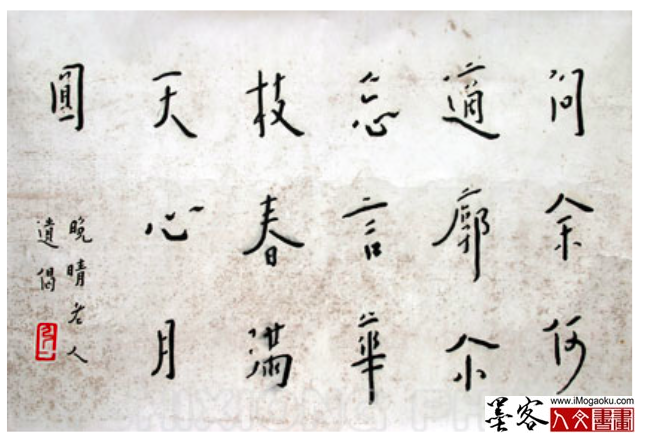 問余何
適廓尒
忘言華
枝春滿
天心月
圓
晚晴老人
遺偈
墨客
www.iMogaoku.com
人文書畫